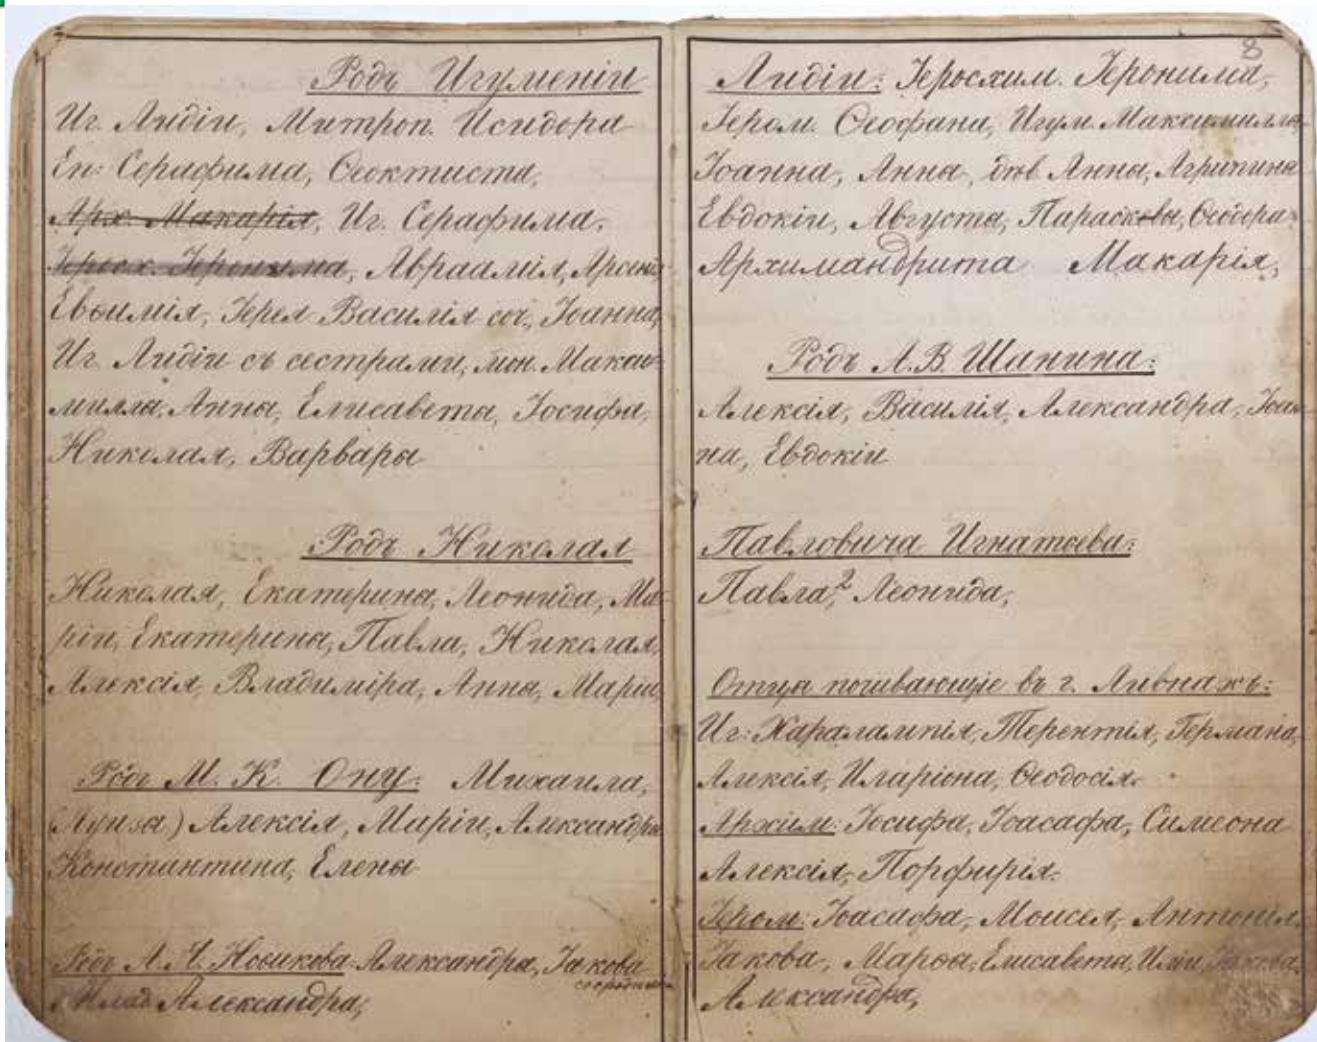 Родъ Игуменіи
Иг. Лидіи, Митроп. Исидора
Еп: Серафима, Ѳеоктиста,
Арх. Макарія, Иг. Серафима,
Іеросх. Іеронима, Авраамія, Арсенія
Евѳимія, Іерея Василія соч., Іоанна,
Иг. Лидіи съ сестрами, мон. Макси
милла, Анны, Елисаветы, Іосифа,
Николая, Варвары
Родъ Николая
Николая, Екатерины, Леонида, Ма
ріи, Екатерины, Павла, Николая,
Алексія, Владиміра, Анны, Маріи,
Родъ М. К. Ону: Михаила,
(Луиза) Алексія, Маріи, Александры
Константина, Елены
Родъ А. Ч. Новикова: Александра, Іакова
стородник
Млад Александра,
8
Лидіи: Іеросхим. Іеронима,
Іером. Ѳеофана, Игум. Максимилла
Іоанна, Анны, дѣв. Анны, Агрипины
Евдокіи, Августы, Параскевы, Ѳеодора
Архимандрита Макарія,
Родъ А. В. Шанина:
Алексія, Василія, Александра, Іоан
на, Евдокіи
Павловича Игнатьева:
Павла,2 Леонида,
Отцы почивающіе въ г. Ливнахъ:
Иг: Харалампія, Терентія, Германа,
Алексія, Иларіона, Ѳеодосія.
Архим: Іосифа, Іоасафа, Симеона
Алексія, Порфирія.
Іером: Іоасафа, Моисея, Антонія,
Іакова, Марѳы, Елисаветы, Иліи, Іакова,
Александра,